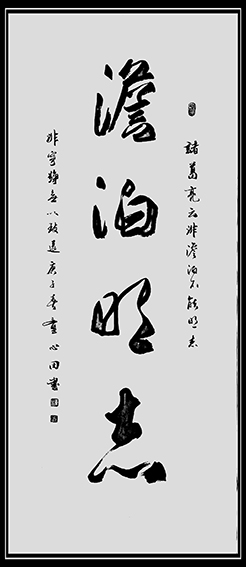 諸葛亮云非澹泊不能明志
澹泊明志
非寧靜無以致遠庚子春心田書